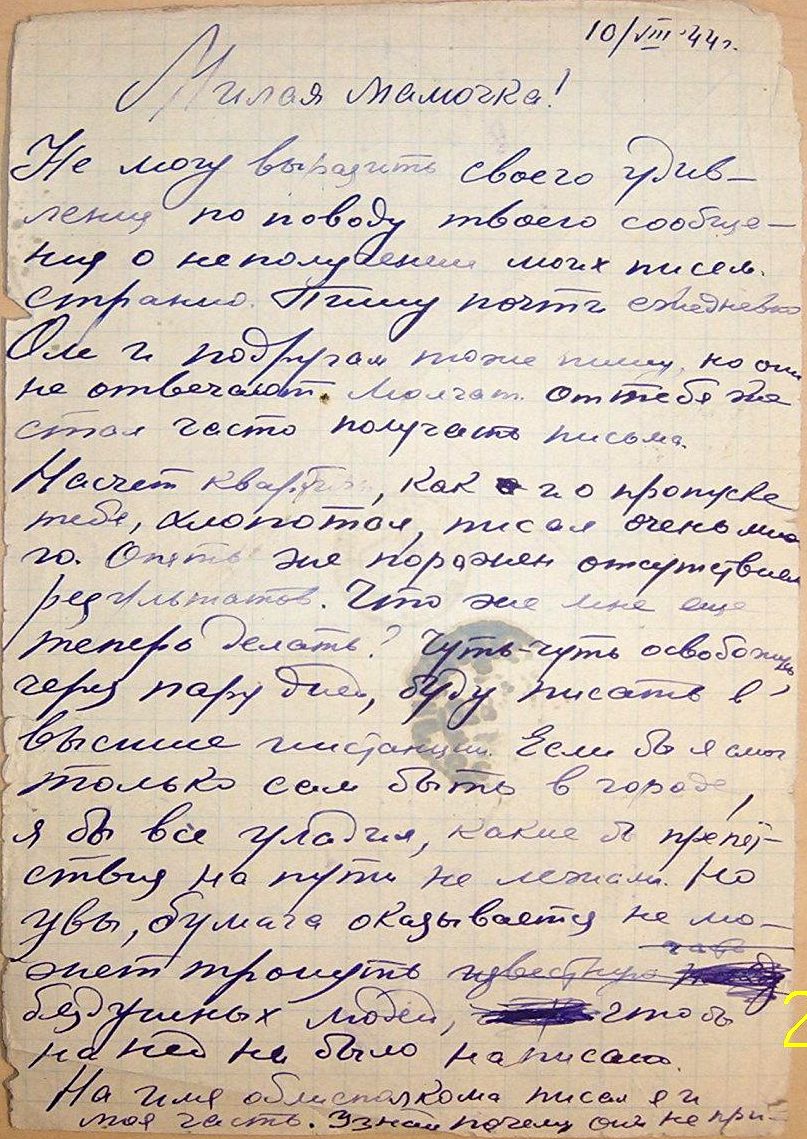 10/VIII-44г.
Милая мамочка!
Не могу выразить своего удив-
ления по поводу твоего сообще-
ния о неполучении моих писем.
Странно. Пишу почти ежедневно
Оле и подругам тоже пишу, но они
не отвечают. Молчат. От тебя же
стал часто получать письма.
Насчет квартиры, как и о пропуске
тебе, хлопотал, писал очень мно
го. Опять же поражен отсутствием
результатов. Что же мне еще
теперь делать? Чуть-чуть освобожусь
через пару дней, буду писать в
высшие инстанции. Если бы я смог
только сам быть в городе,
я бы все уладил, какие б препят-
ствия на пути не лежали. Но
увы, бумага оказывается не мо-
жет тронуть известную
бездушных людей, чтобы
на ней не было написано.
На имя облисполкома писал я и
моя часть. Узнай почему они не при-
2